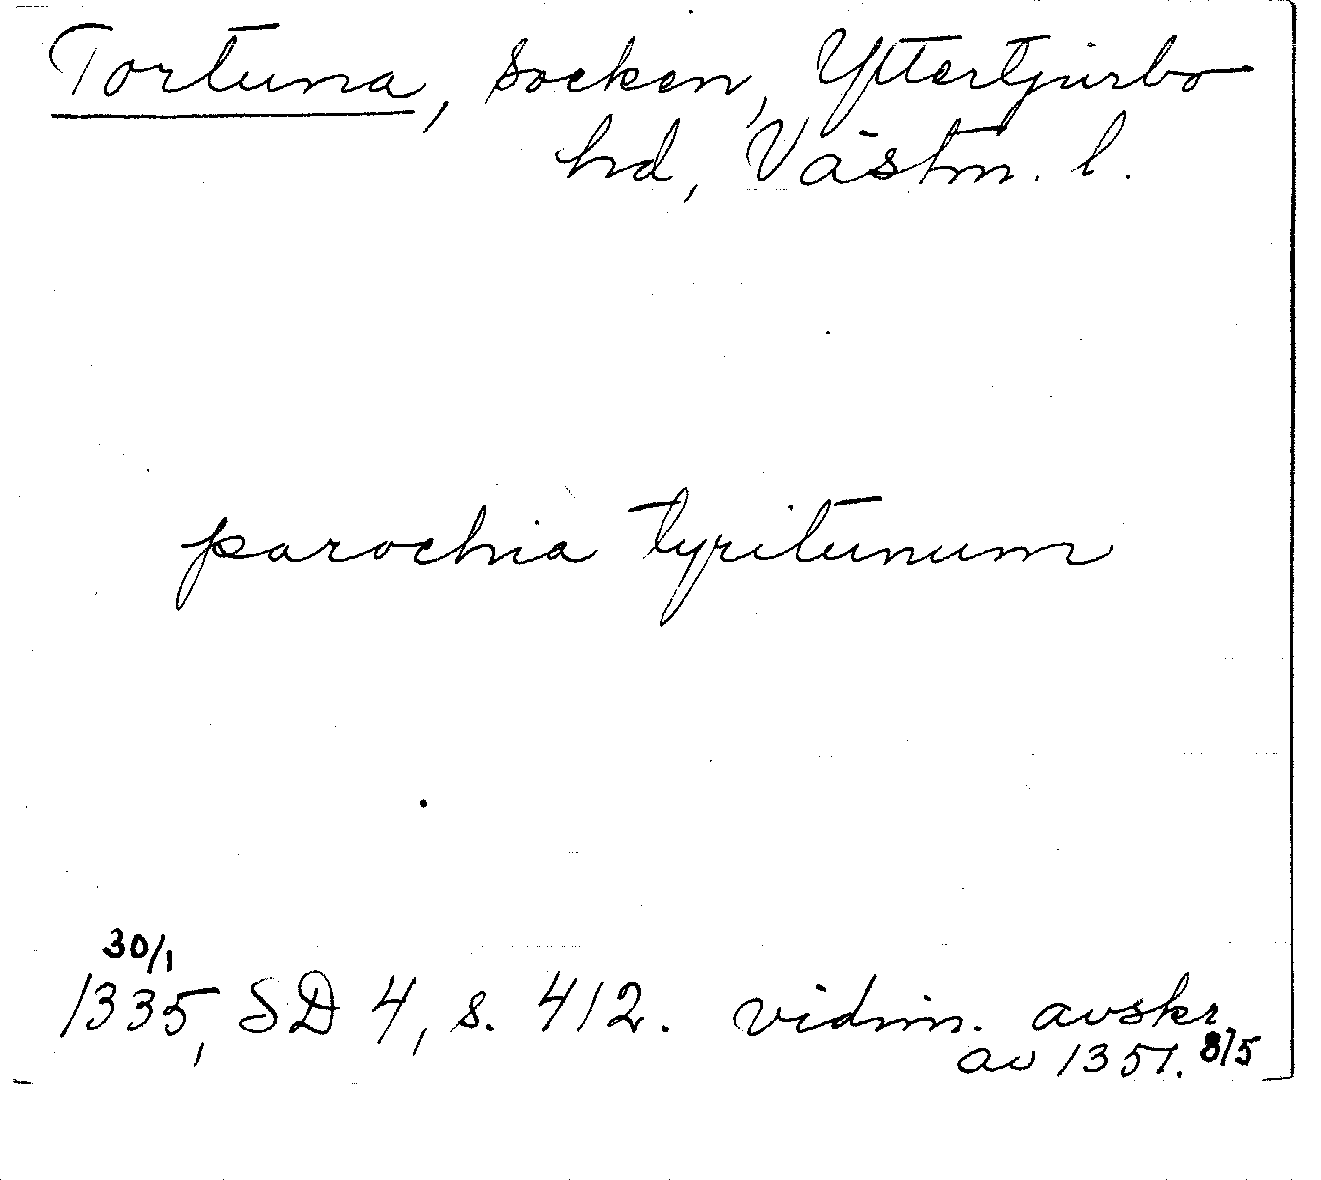 Tortuna, socken, Yttertjurbo
hd, Västm. l.
parochia tyritunum
30/1
1335, SD 4, s. 412. vidim. avskr
av 1351. 8/5